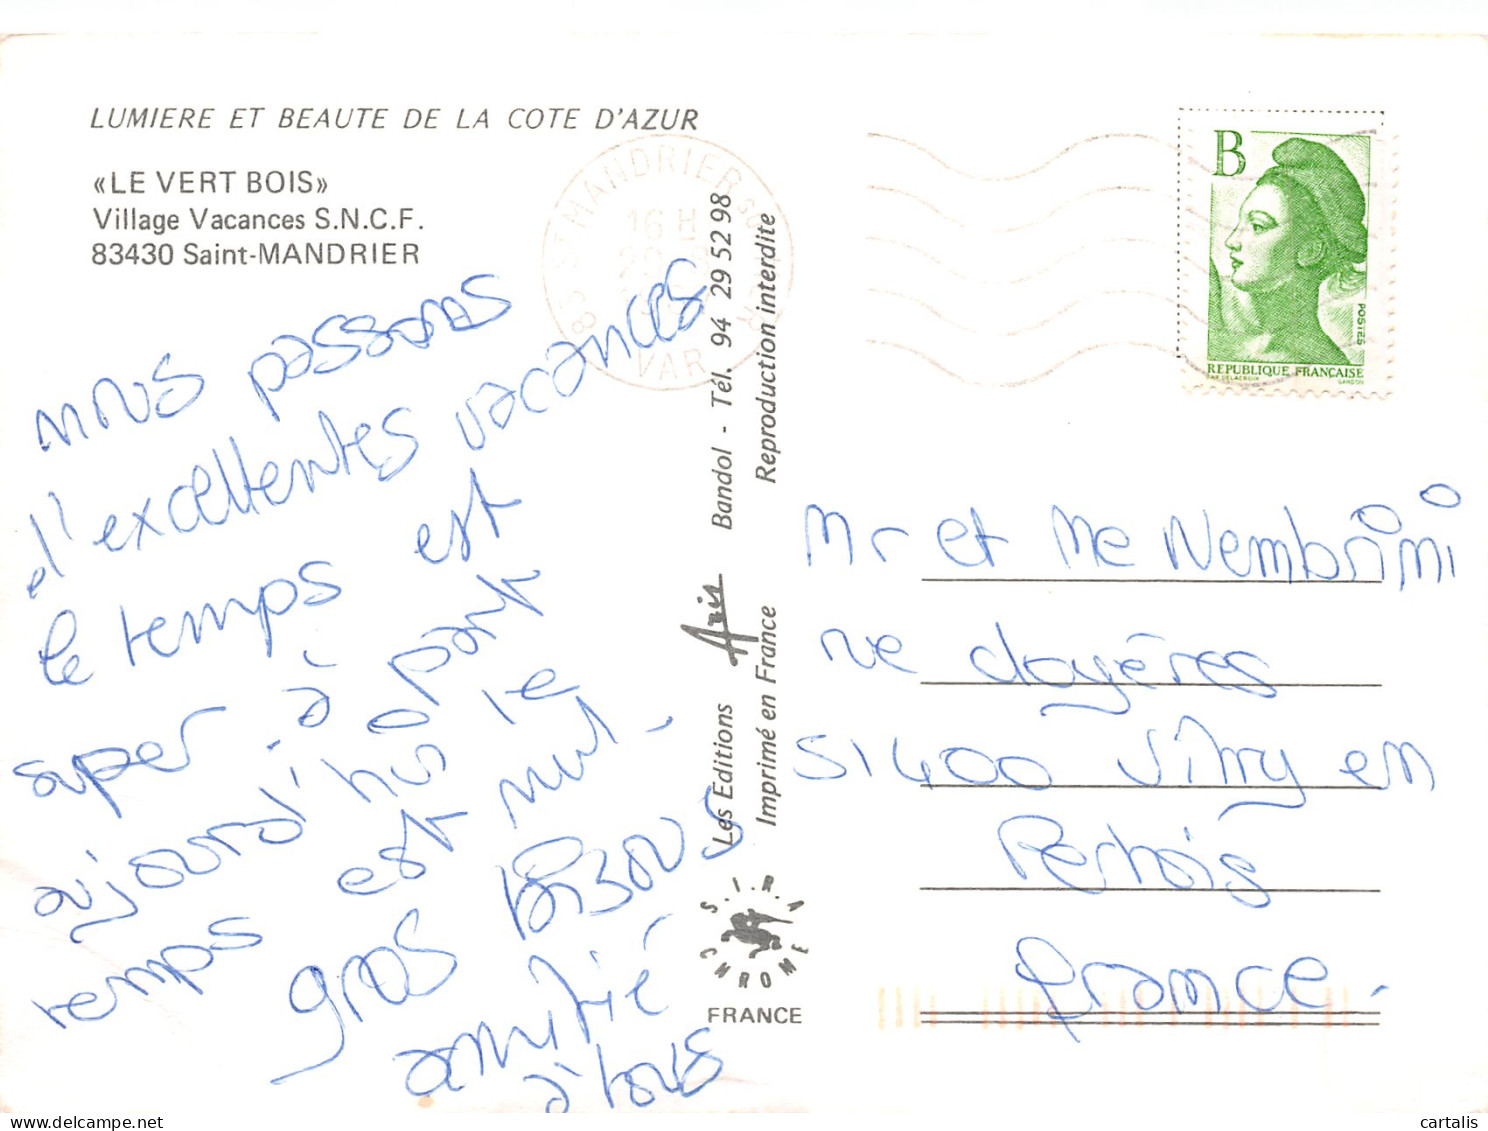 LUMIERE ET BEAUTE DE LA COTE D'AZUR
«LE VERT BOIS»
Village Vacances S.N.C.F.
83430 Saint-MANDRIER
nous passons
d'excellentes vacances
le temps est
super à part
aujourd'hui le
temps est nul.
gros bizous
amitié
à tous
83 ST MANDRIER
16 H
VAR
Les Editions Aris Bandol - Tél. 94 29 52 98
Imprimé en France Reproduction interdite
S.I.R.A
CHROME
FRANCE
B
POSTES
REPUBLIQUE FRANÇAISE
DELACROIX GANDON
Mr et Me Nembrini
rue doyères
51400 Vitry en
Perthois
france.
cartalis